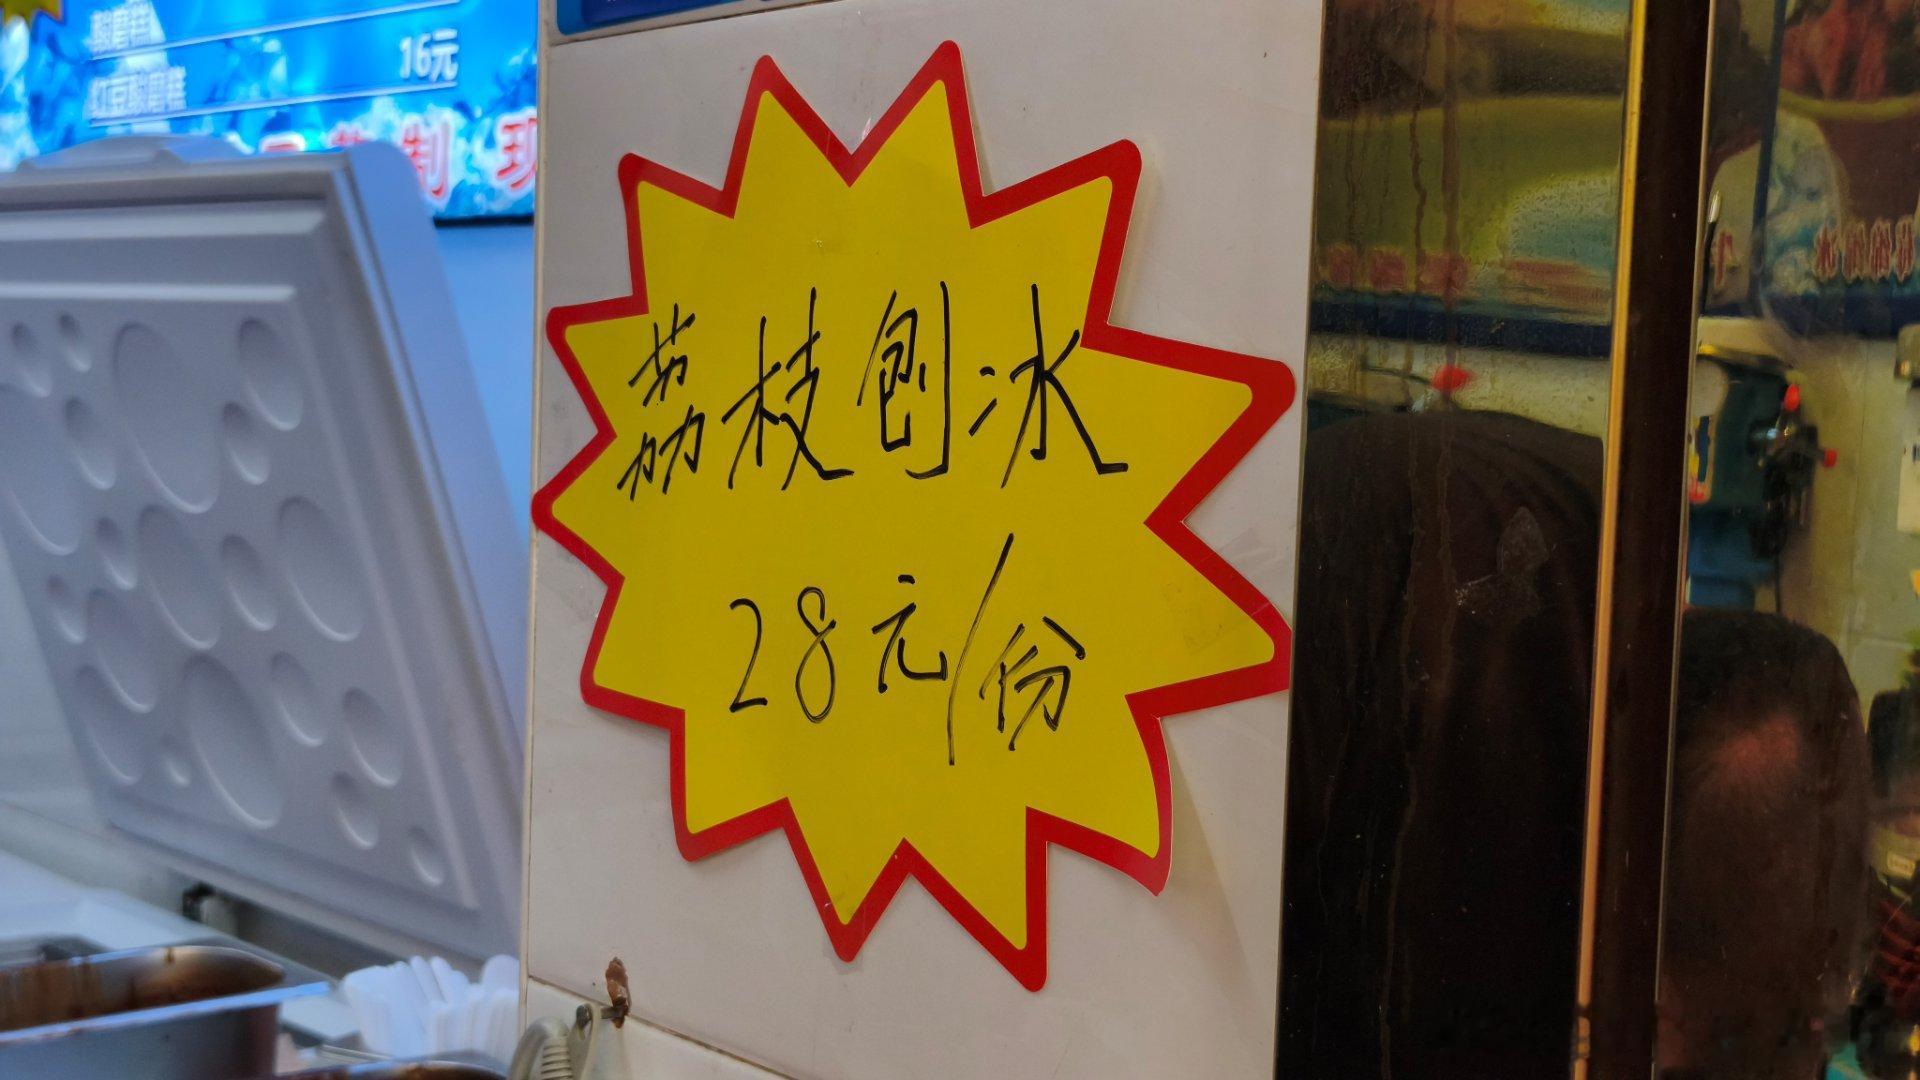 16元
红豆酸磨糕
制 现
荔枝刨冰
28元/份